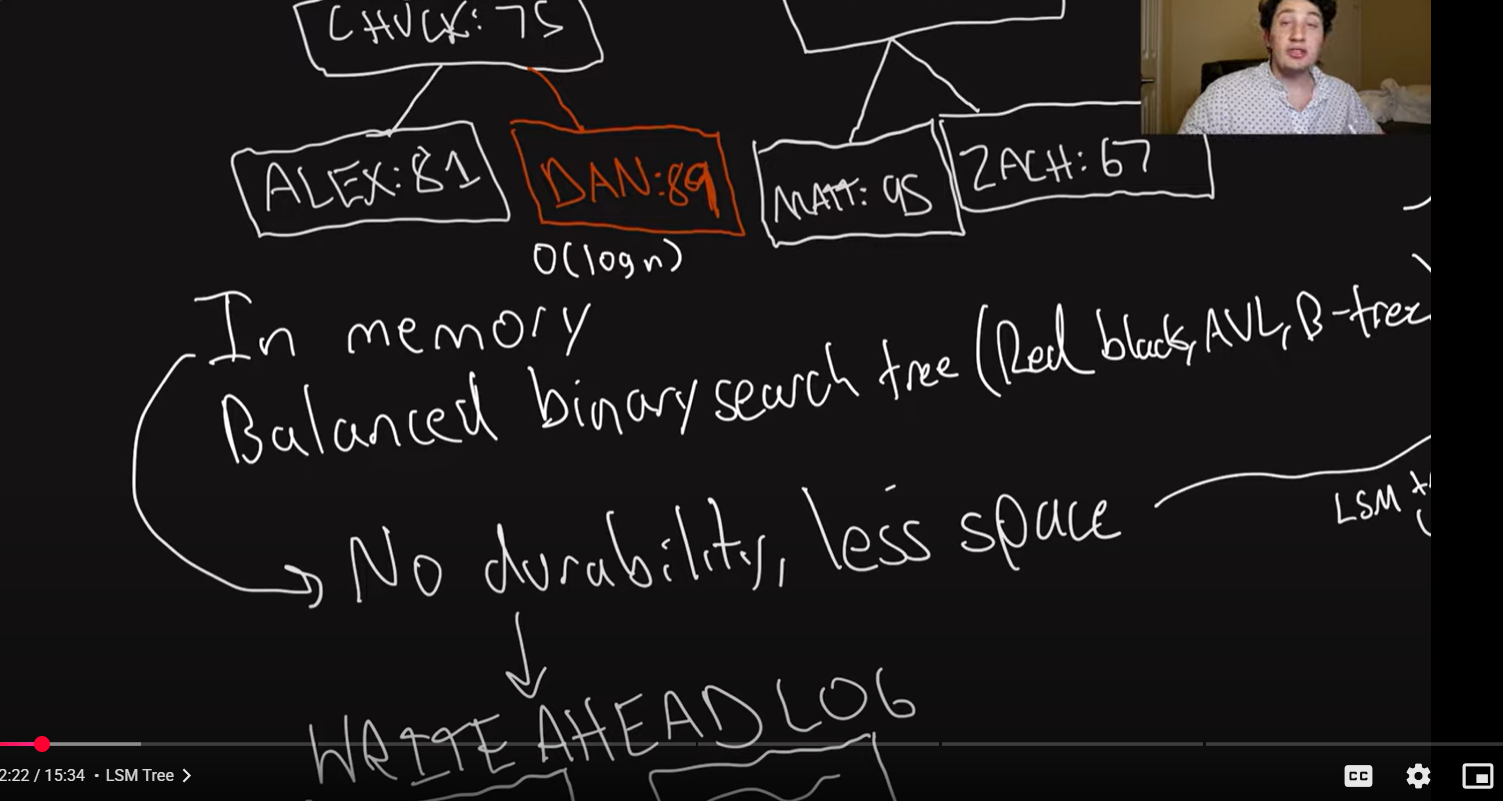 CHUCK: 75
ALEX: 81
DAN: 89
MATT: 95
ZACH: 67
O(log n)
In memory
Balanced binary search tree (Red black, AVL, B-tree)
No durability, less space
LSM
WRITE AHEAD LOG
2:22 / 15:34 • LSM Tree
CC